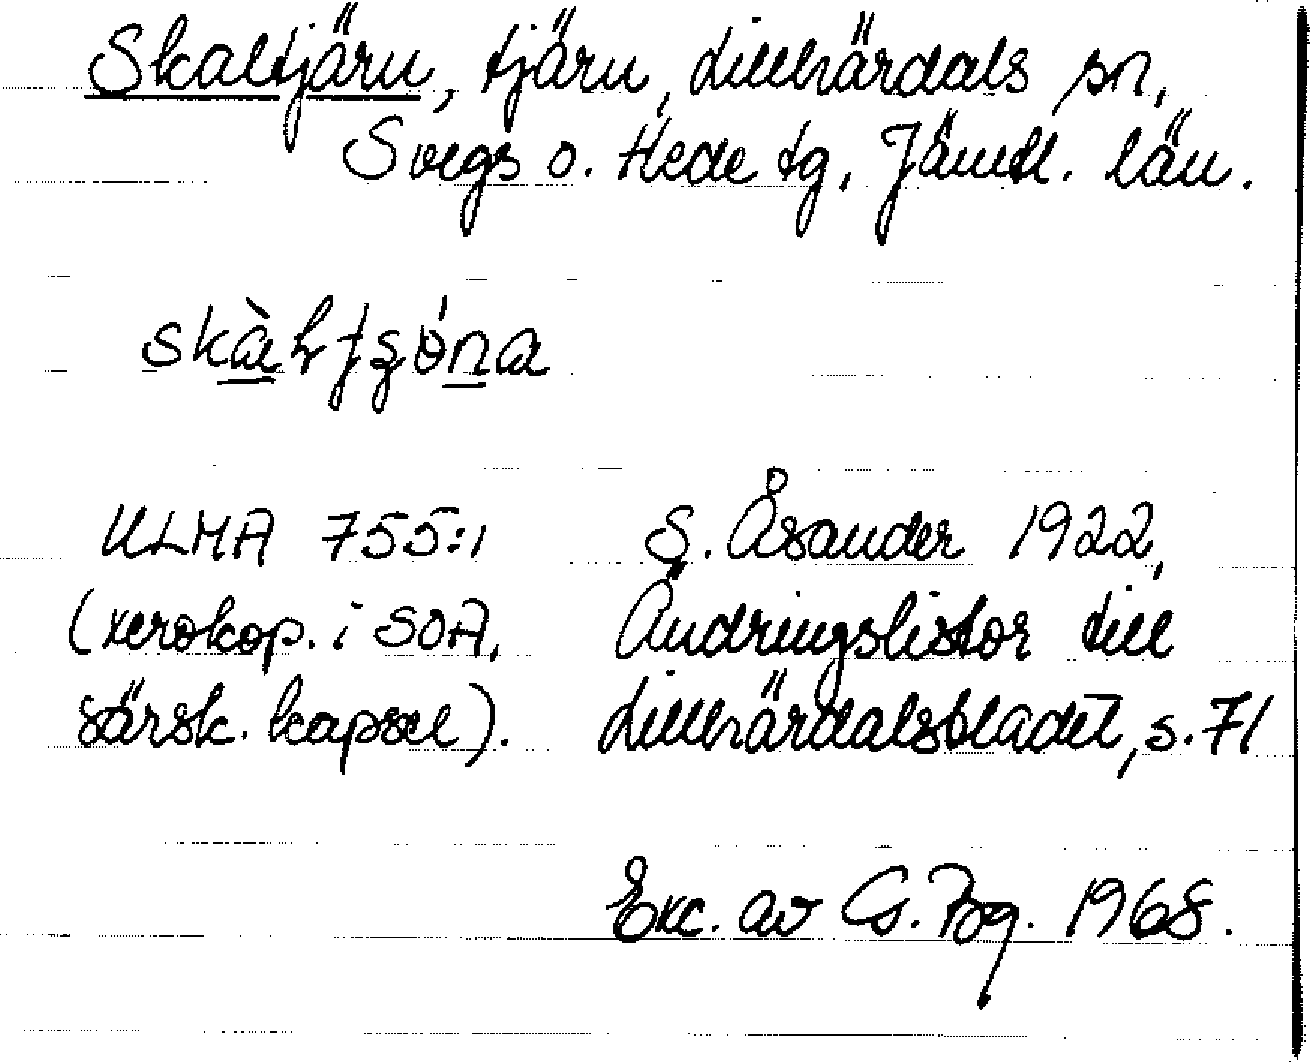 Skaltjärn, tjärn, Lillhärdals sn,
Svegs o. Hede tg, Jämtl. län.
ULMA 755:1 S. Åsander 1922,
(xerokop. i SOA, Ändringslistor till
särsk. kapsel). Lillhärdalsbladet, s. 71
Exc. av G. Bg. 1968.